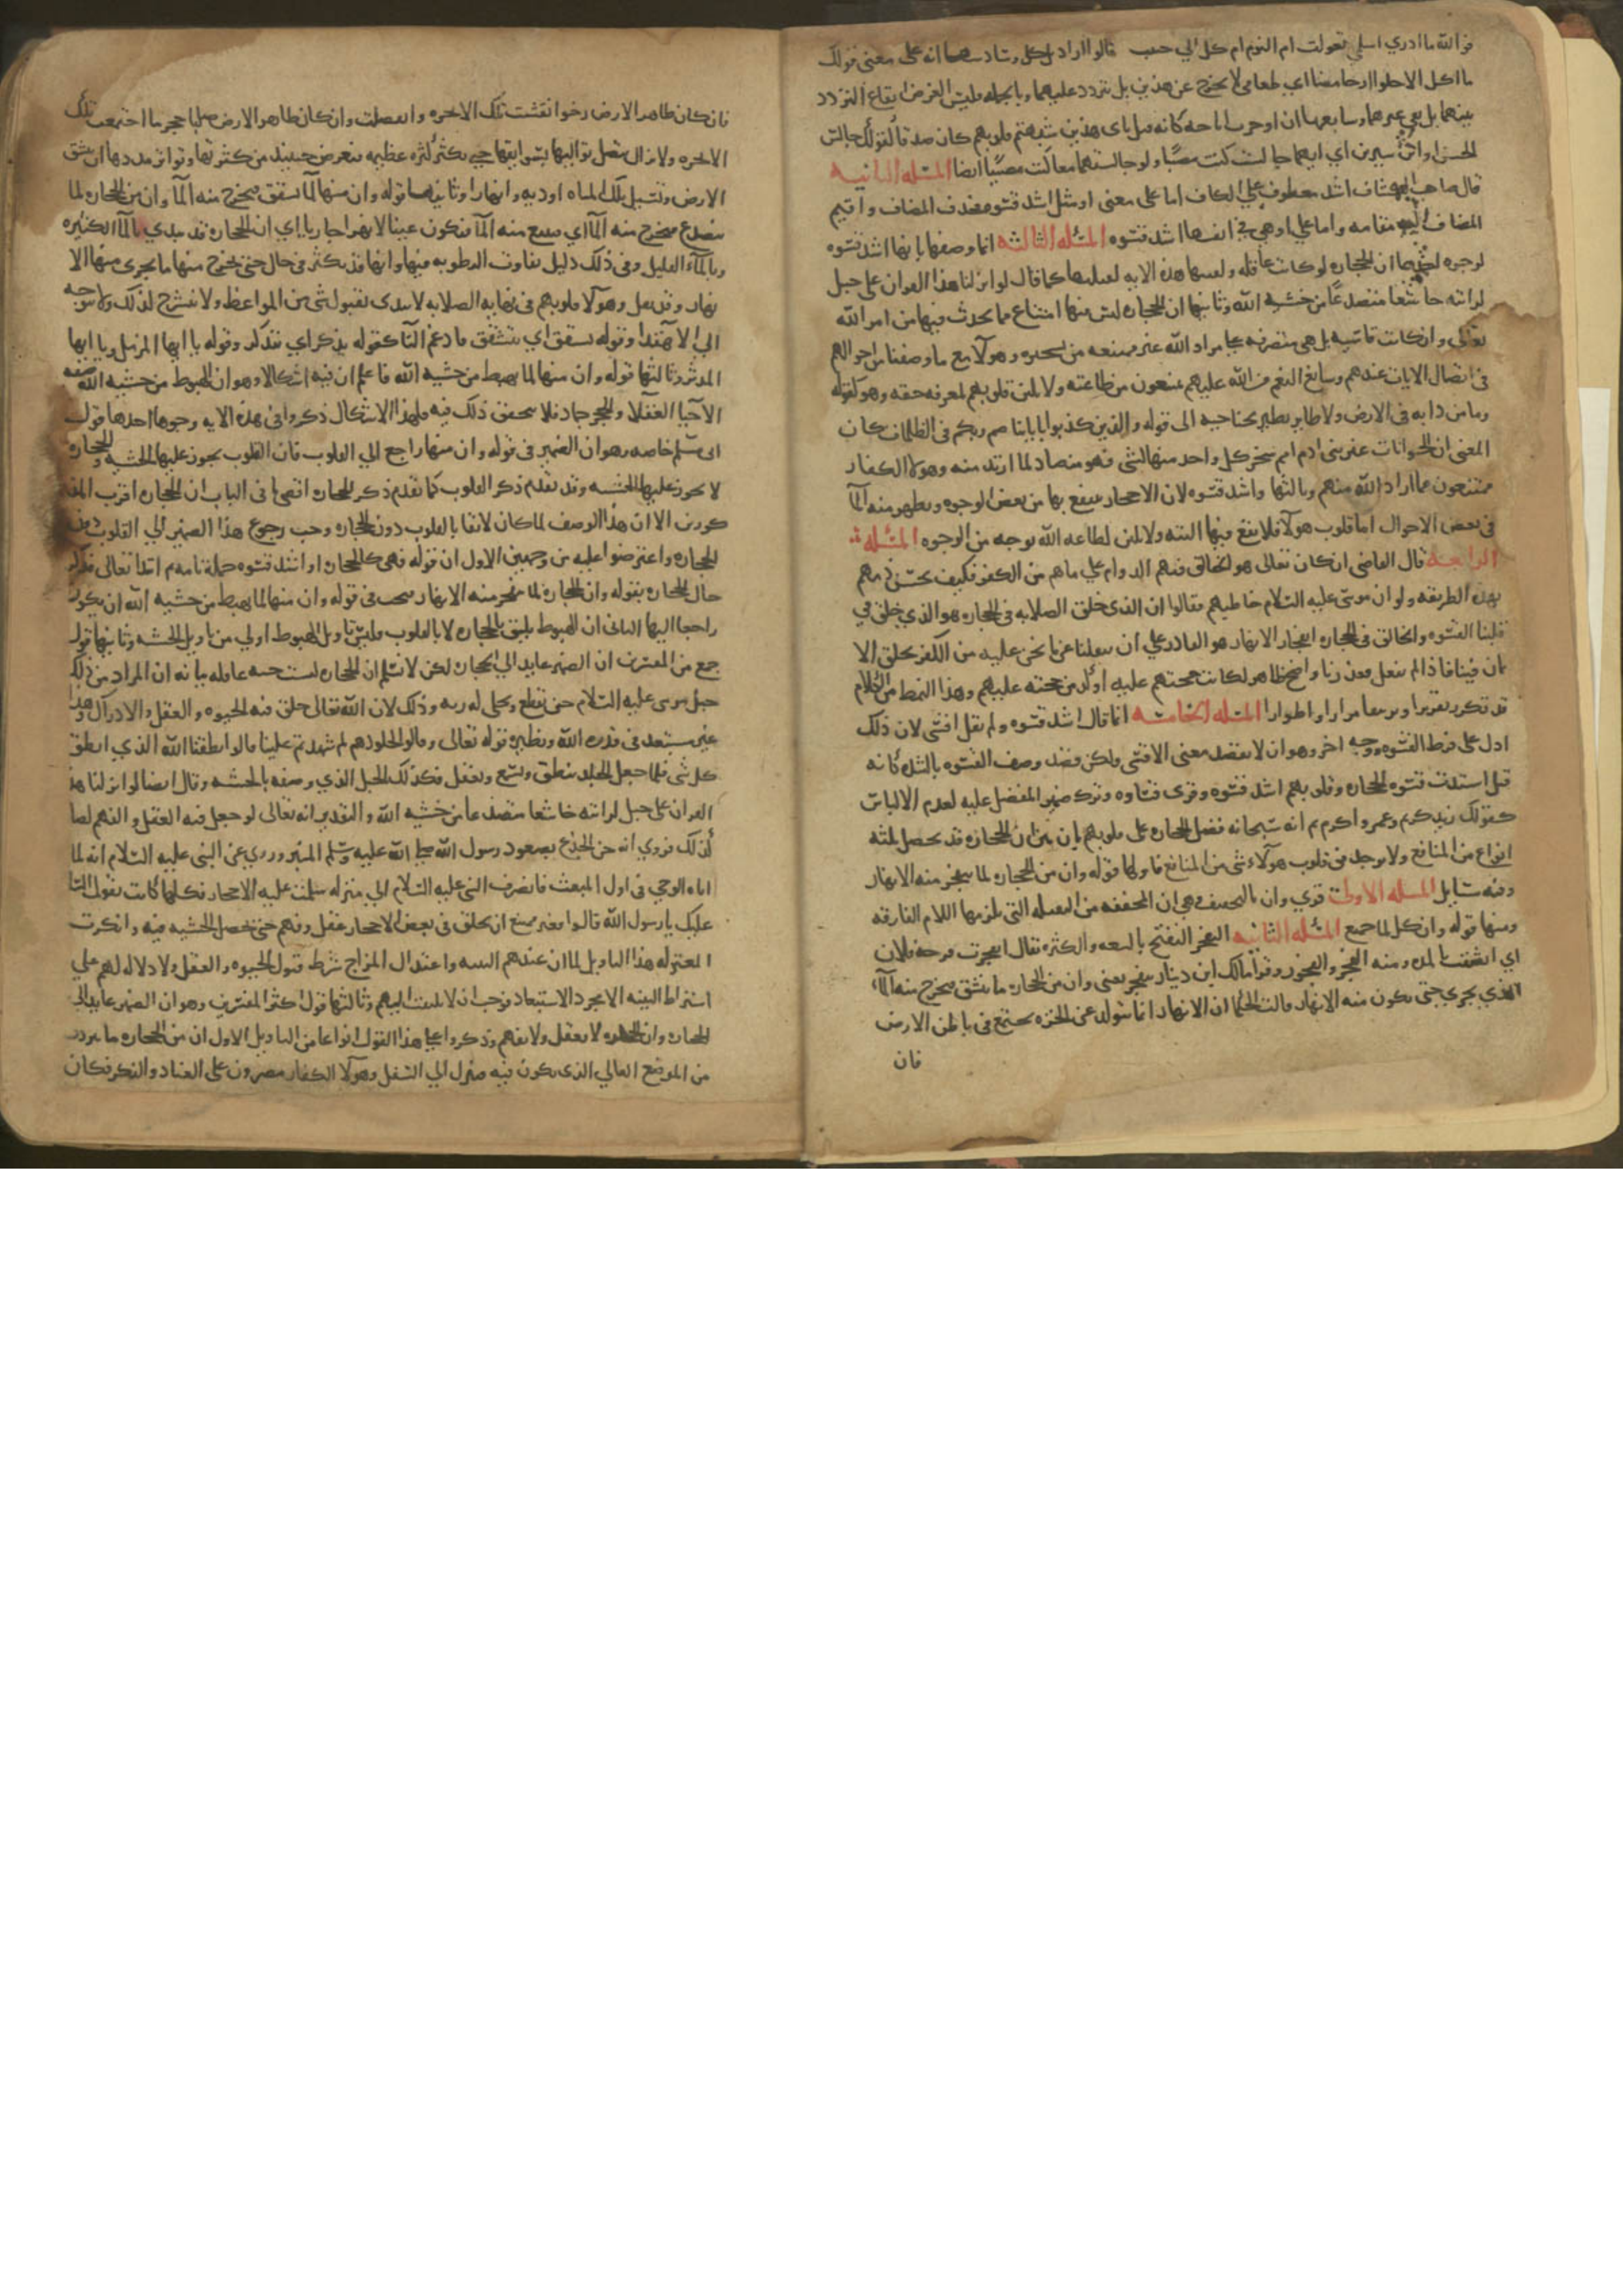 فوالله ما ادري اسلمى تغولت ام النوم ام كل الي حبيب قالوا اراد بل كل وسادسها انه على معنى قولك
ما اكل الا حلوا او حامضا اي طعامي لا يخرج عن هذين بل يتردد عليهما وبالجمله فليس الغرض ايقاع التردد
بينهما بل نفي غيرهما وسابعها ان او حرف اباحه كانه قيل باى هذين شبهتم قلوبهم كان صدقا كقولك جالس
الحسن او ابن سيرين اي ايهما جالست كنت مصيبا ولو جالستهما معا كنت مصيبا ايضا المسئله الثانيه
قال صاحب الكشاف اشد معطوف على الكاف اما على معنى او مثل اشد قسوه فحذف المضاف واقيم
المضاف اليه مقامه واما على او هي في انفسها اشد قسوه المسئله الثالثه انما وصفها بانها اشد قسوه
لوجوه احدها ان الحجاره لو كانت عاقله ولقيتها هذه الايه لقبلتها كما قال لو انزلنا هذا القران على جبل
لرايته خاشعا متصدعا من خشيه الله وثانيها ان الحجاره ليس فيها امتناع مما يحدث فيها من امر الله
تعالى وان كانت قاسيه بل هي متصرفه على مراد الله غير ممتنعه من تسخيره وهولاء مع ما وصفنا من احوالهم
في اتصال الايات عندهم وسابغ النعم من الله عليهم يمتنعون من طاعته ولا تلين قلوبهم لمعرفه حقه وهو كقوله
وما من دابه في الارض ولا طاير يطير بجناحيه الى قوله والذين كذبوا باياتنا صم وبكم في الظلمات كان
المعنى ان الحيوانات غير بني ادم امم سخر كل واحد منها لشي فهو منقاد لما اريد منه وهولاء الكفار
ممتنعون عما اراد الله منهم وثالثها واشد قسوه لان الاحجار ينتفع بها من بعض الوجوه ويظهر منه الماء
في بعض الاحوال اما قلوب هولاء فلا نفع فيها البته ولا تلين لطاعه الله بوجه من الوجوه المسئله
الرابعه قال القاضي ان كان تعالى هو الخالق فيهم الدوام على ما هم من الكفر فكيف يحسن ذمهم
بهذه الطريقه ولو ان موسى عليه السلام خاطبهم فقالوا ان الذي خلق الصلابه في الحجاره هو الذي خلق في
قلبنا القسوه والخالق في الحجاره انفجار الانهار هو القادر على ان ينقلنا عن ما نحن عليه من الكفر بخلق الا
يمان فينا فاذا لم يفعل فعذرنا واضح ظاهر لكانت حجتهم عليه اوكد من حجته عليهم وهذا النمط من الكلام
قد تكرر تقريرا وتفريعا مرارا واطوارا المسئله الخامسه انما قال اشد قسوه ولم يقل اقسى لان ذلك
ادل على فرط القسوه ووجه اخر وهو ان لا يقصد معنى الاقسى ولكن قصد وصف القسوه بالشده كانه
قيل اشتدت قسوه الحجاره وقلوبهم اشد قسوه وقرى قساوه وترك ضمير المفضل عليه لعدم الالباس
كقولك زيد كريم وعمرو اكرم ثم انه سبحانه فضل الحجاره على قلوبهم بان بين ان الحجاره قد يحصل لمثه
انواع من المنافع ولا يوجد في قلوب هولاء شي من المنافع فاولها قوله وان من الحجاره لما يتفجر منه الانهار
وفيه مسايل المسله الاولى قري وان بالتخفيف وهي ان المخففه من الثقيله التي تلزمها اللام الفارقه
ومنها قوله وان كل لما جميع المسئله الثانيه التفجر التفتح بالسعه والكثره يقال انفجرت قرحه فلان
اي انشقت بالمده ومنه الفجر والفجور وقرا مالك ابن دينار ينفجر يعني وان من الحجاره ما ينشق فيخرج منه الماء
الذي يجري حتى يكون منه الانهار قالت الحكما ان الانهار انما تتولد عن ابخره تجتمع في باطن الارض
فان
فان كان ظاهر الارض رخوا انفشت تلك الابخره وانفصلت وان كان ظاهر الارض صلبا حجريا اجتمعت تلك
الابخره ولا يزال يتصل تواليها بسوابقها حتى تكثر كثره عظيمه فيعرض حينيذ من كثرتها وتواتر مددها ان ينشق
الارض وتسيل تلك المياه اوديه وانهارا وثانيها قوله وان منها لما يشقق فيخرج منه الماء وان من الحجاره لما
ينصدع فيخرج منه الماء اي ينبع منه الماء فتكون عينا لا نهرا جاريا اي ان الحجاره قد تندي بالماء الكثيره
وبالماء القليل وفي ذلك دليل تفاوت الرطوبه فيها وانها قد تكثر في حال حتى يخرج منها ما يجري منها الا
نهار وقد تقل وهولاء قلوبهم في نهايه الصلابه لا تندى بقبول شي من المواعظ ولا تنشرح لذلك ولا تتوجه
الى الاهتداء وقوله يشقق اي يتشقق فادغم التاء كقوله يذكر اي يتذكر وقوله يا ايها المزمل ويا ايها
المدثر وثالثها قوله وان منها لما يهبط من خشيه الله فاعلم ان فيه اشكالا وهو ان الهبوط من خشيه الله صفه
الاحيا العقلا والحجر جماد فلا يتحقق ذلك فيه فلهذا الاشكال ذكروا في هذه الايه وجوها احدها قول
ابي مسلم خاصه وهو ان الضمير في قوله وان منها راجع الي القلوب فان القلوب يجوز عليها الخشيه والحجاره
لا يجوز عليها الخشيه وقد تقدم ذكر القلوب كما تقدم ذكر الحجاره اقصى ما في الباب ان الحجاره اقرب المذ
كورين الا ان هذا الوصف لما كان لايقا بالقلوب دون الحجاره وجب رجوع هذا الضمير الي القلوب دون
الحجاره واعترضوا عليه من وجهين الاول ان قوله فهي كالحجاره او اشد قسوه جمله تامه ثم ابتدا تعالى فذكر
حال الحجاره بقوله وان من الحجاره لما يتفجر منه الانهار فيجب في قوله وان منها لما يهبط من خشيه الله ان يكون
راجعا اليها الثاني ان الهبوط يليق بالحجاره لا بالقلوب فليس تاويل الهبوط اولي من تاويل الخشيه وثانيها قول
جمع من المفسرين ان الضمير عايد الي الحجاره لكن لا نسلم ان الحجاره ليست حيه عاقله بيانه ان المراد من ذلك
جبل موسى عليه السلام حين تقطع وتجلى له ربه وذلك لان الله تعالى خلق فيه الحيوه والعقل والادراك وهذا
غير مستبعد في قدره الله ونظيره قوله تعالى وقالوا لجلودهم لم شهدتم علينا قالوا انطقنا الله الذي انطق
كل شي فكما جعل الجلد ينطق ويسمع ويعقل فكذلك الجبل الذي وصفه بالخشيه وقال ايضا لو انزلنا هذا
القران على جبل لرايته خاشعا متصدعا من خشيه الله والتقدير انه تعالى لو جعل فيه العقل والفهم لصا
كذلك فروي انه حن الجذع بصعود رسول الله صلى الله عليه وسلم المنبر وروي عن النبي عليه السلام انه لما
اتاه الوحي في اول المبعث فانصرف النبي عليه السلام الي منزله سلمت عليه الاحجار فكلها كانت تقول السلا
عليك يا رسول الله قالوا فغير ممتنع ان يخلق في بعض الاحجار عقل وفهم حتى تحصل الخشيه فيه وانكرت
المعتزله هذا التاويل لما ان عندهم البنيه واعتدال المزاج شرط قبول الحيوه والعقل ولا دلاله لهم علي
اشتراط البنيه الا مجرد الاستبعاد فوجب ان لا يلتفت اليهم وثالثها قول اكثر المفسرين وهو ان الضمير عايد الى
الحجاره وان الحجاره لا تعقل ولا تفهم وذكروا على هذا القول انواعا من التاويل الاول ان من الحجاره ما يتردى
من الموضع العالي الذي يكون فيه فينزل الي السفل وهولاء الكفار مصرون على العناد والتكبر فكان